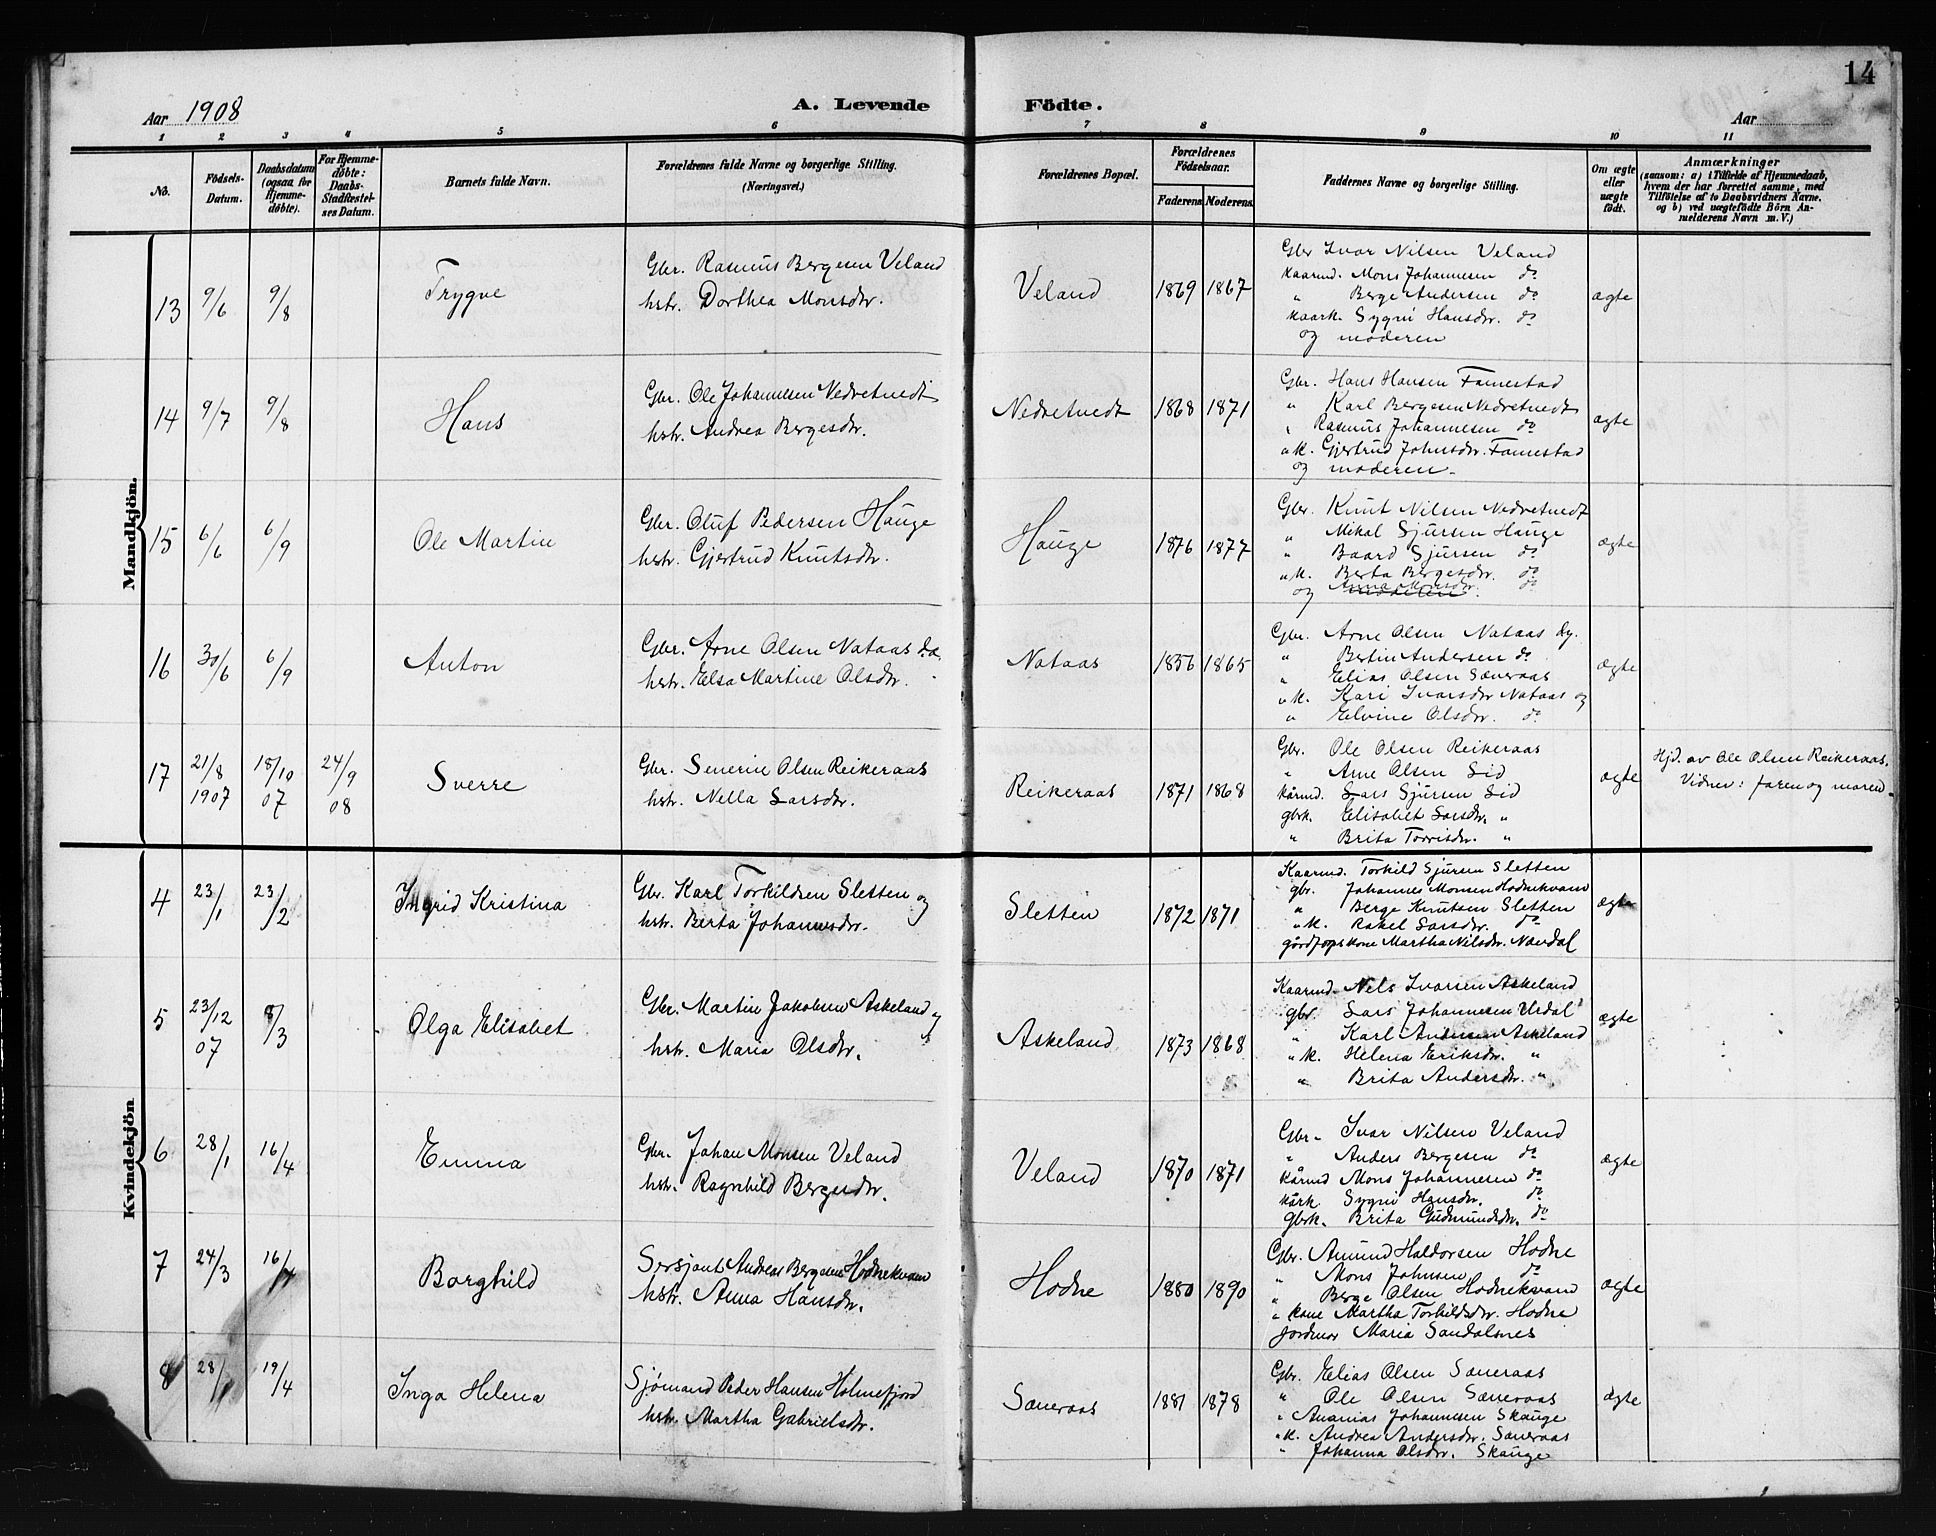 14
Aar 1908
A. Levende Födte.
Aar
1 2 3 4 5 6 7 8 9 10 11
No.
Födsels-Datum.
Daabsdatum (ogsaa for Hjemme-döbte).
For Hjemme-döbte: Daabs-Stadfæstel-ses Datum.
Barnets fulde Navn.
Forældrenes fulde Navne og borgerlige Stilling. (Næringsvei.)
Forældrenes Bopæl.
Forældrenes Födselsaar.
Faderens. Moderens.
Faddernes Navne og borgerlige Stilling.
Om ægte eller uægte født.
Anmærkninger
(saasom: a) i Tilfælde af Hjemmedaab, hvem der har forrettet samme, med Tilföielse af to Daabsvidners Navne, og b) ved uægtefödte Börn An-melderens Navn m. V.)
Mandkjön.
13 9/6 9/8 Trygve
Gbr. Rasmus Bergesen Veland
hstr. Dorthea Monsdtr.
Veland 1869 1867
Gbr Ivar Nilsen Veland
kaarmd. Mons Johannesen do
" Berge Andersen do
kaark. Sygni Hansdtr. do
og moderen
ægte
14 9/7 9/8 Hans
Gbr. Ole Johannesen Nedretvedt
hstr. Andrea Bergesdtr.
Nedretvedt 1868 1871
Gbr. Hans Hansen Famestad
" Karl Bergesen Nedretvedt
" Rasmus Johannesen do
" k. Gjertrud Johnsdtr. Famestad
og moderen.
ægte
15 6/6 6/9 Ole Martin
Gbr. Oluf Pedersen Hauge
hstr. Gjertrud Knutsdtr.
Hauge 1876 1877
Gbr. Knut Nilsen Nedretvedt
" Mikal Sjursen Hauge
" Baard Sjursen do
" k. Berta Bergesdtr. do
og Anna Monsdtr. do
moderen.
ægte
16 30/6 6/9 Anton
Gbr. Arne Olsen Nataas da.
hstr. Elsa Martine Olsdtr.
Nataas 1856 1865
Gbr. Arne Olsen Nataas dy.
" Bertin Andersen do
" Elias Olsen Sæveraas
" k. Kari Ivarsdtr Nataas og
" Elvine Olsdtr. do
ægte
17 21/8 1907 18/10 07 24/9 08 Sverre
Gbr. Severin Olsen Reikeraas
hstr. Nella Larsdtr.
Reikeraas 1871 1868
Gbr. Ole Olsen Reikeraas
" Arne Olsen Lid
kårmd. Lars Sjursen Lid
gbrk. Elisabet Larsdtr. "
" Brita Torrisdtr. "
ægte
Hjd. av Ole Olsen Reikeraas.
Vidner: faren og moren.
Kvindekjön
4 23/1 23/2 Ingrid Kristina
Gbr. Karl Torkildsen Sletten og
hstr. Berta Johannesdtr.
Sletten 1872 1871
Kaarmd. Torkild Sjursen Sletten
gbr. Johannes Monsen Hodnekvam
" Berge Knutsen Sletten
" k. Rakel Larsdtr. do
gårdfopskone Martha Nilsdtr. Nævdal
ægte
5 23/12 07 8/3 Olga Elisabet
Gbr. Martin Jakobsen Askeland og
hstr. Maria Olsdtr.
Askeland 1873 1868
Kaarmd. Nels Ivarsen Askeland
gbr. Lars Johannesen Urdal
" Karl Andersen Askeland
" k. Helena Eriksdtr. "
" Brita Andersdtr. "
ægte
6 28/1 16/4 Emma
Gbr. Johan Monsen Veland
hstr. Ragnhild Bergesdtr.
Veland 1870 1871
Gbr. Ivar Nilsen Veland
" Anders Bergesen do
kårmd Mons Johannesen do
kårk. Sygni Hansdtr. do
gbrk. Brita Gudmundsdtr. do
ægte
7 24/3 16/4 Borghild
Sersjant Andreas Bergesen Hodnekvam
hstr. Anna Hansdtr.
Hodne 1880 1890
Gbr. Amund Haldorsen Hodne
" Mons Johnsen do
" Berge Olsen Hodnekvam
" kone Martha Torkildsdtr. Hodne
jordmor Maria Sandalsnes
ægte
8 28/1 19/4 Inga Helena
Sjømand Peder Hansen Holmefjord
hstr. Martha Gabrielsdtr.
Sæveraas 1881 1878
Gbr. Elias Olsen Sæveraas
" Ole Olsen Sæveraas
" Ananias Johannesen Skauge
" k. Andrea Andersdtr. Sæveraas
" Johanna Olsdtr. Skauge
ægte